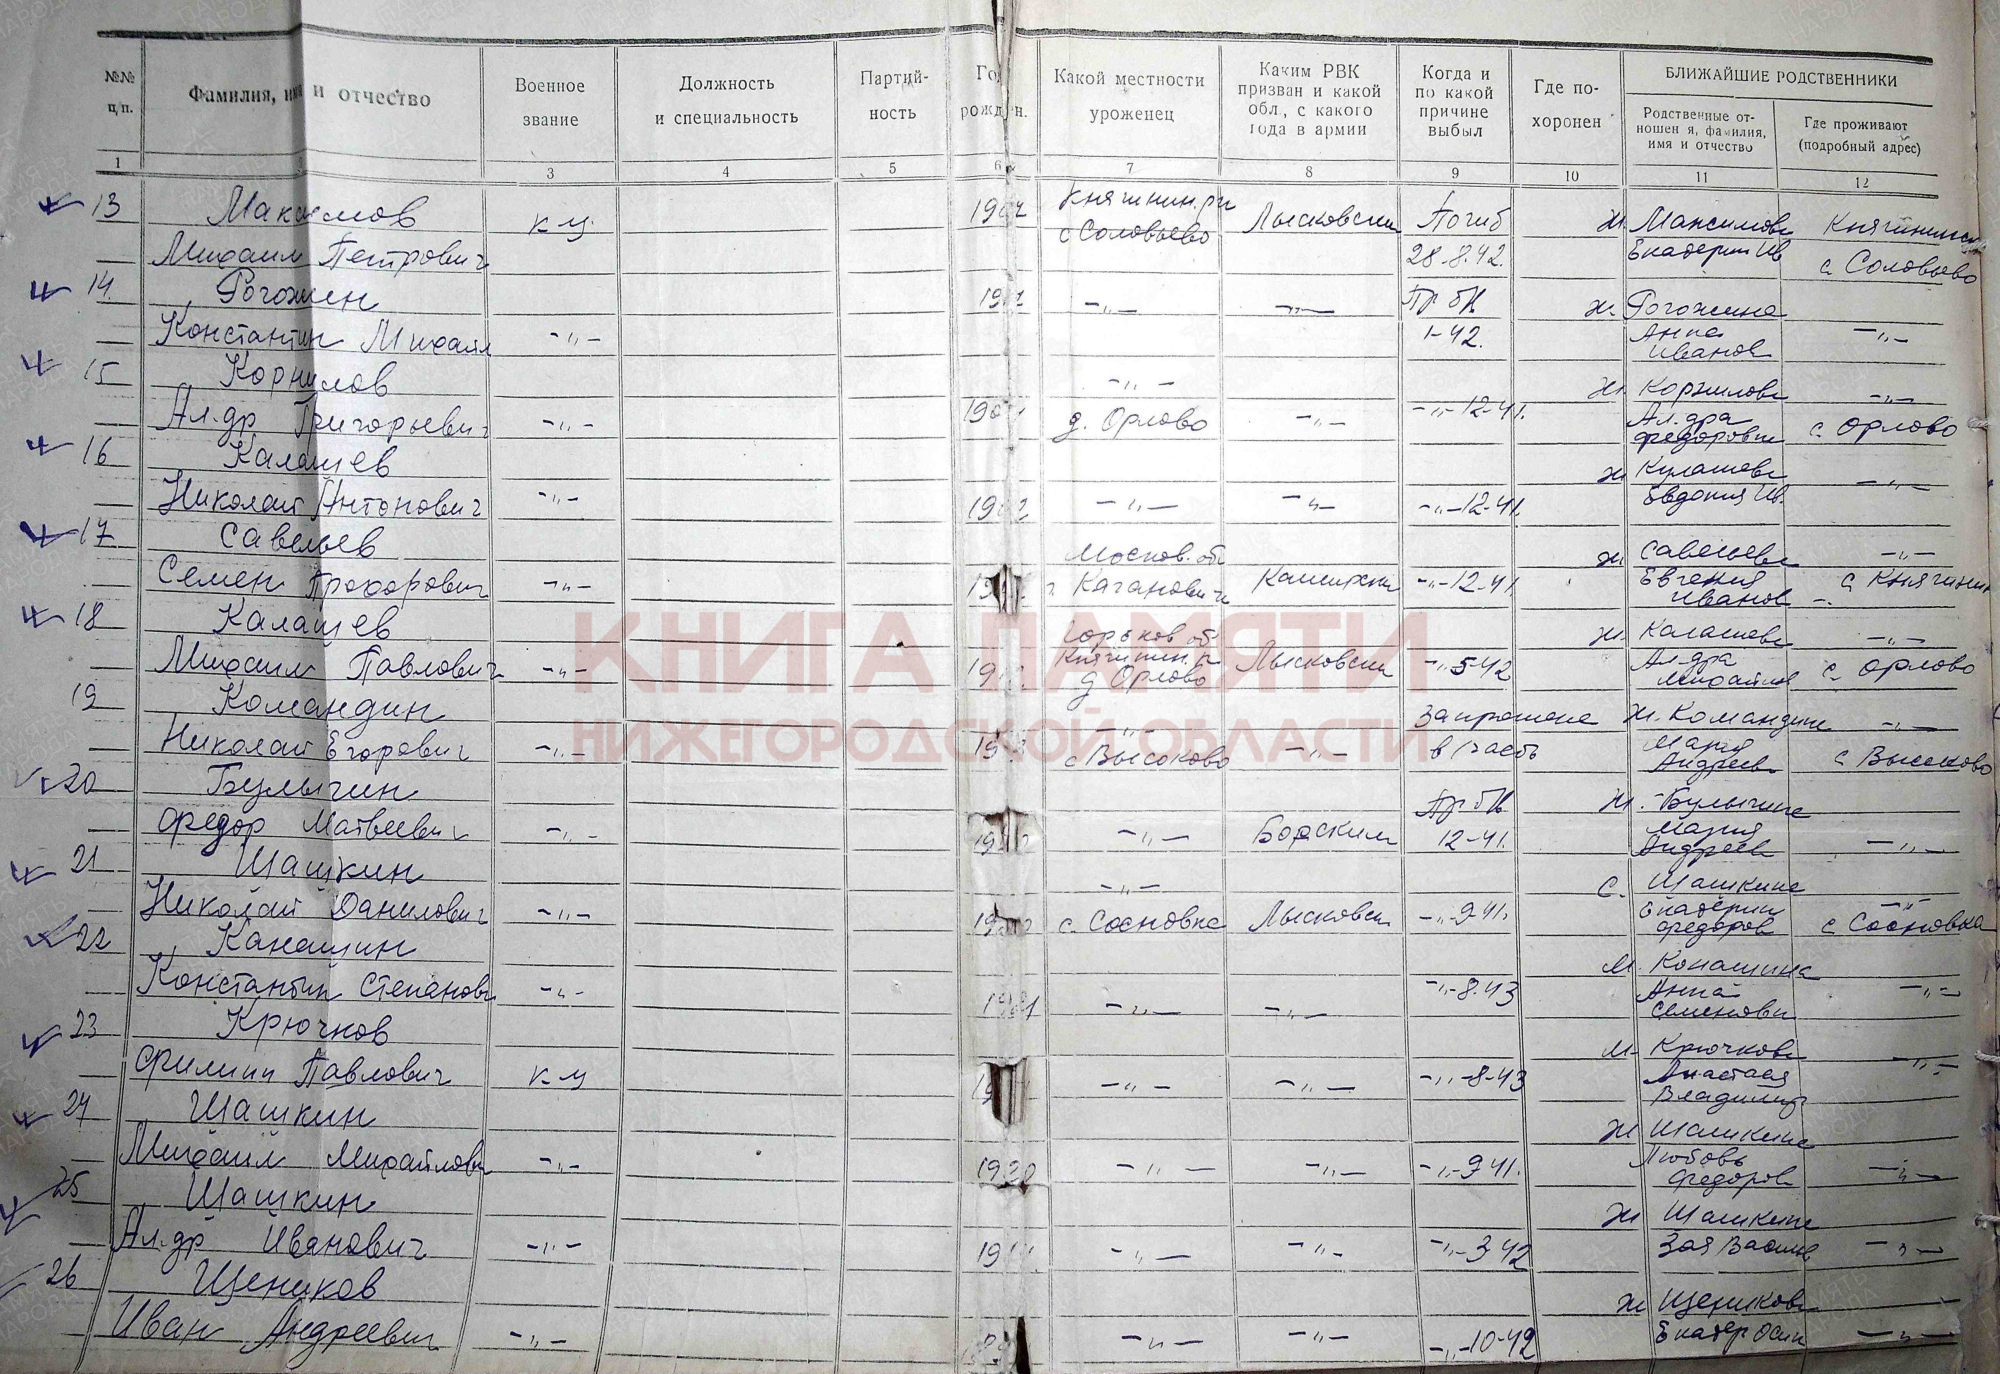 №№ п/п. Фамилия, имя и отчество Военное звание Должность и специальность Партий-ность Год рожден. Какой местности уроженец Каким РВК призван и какой обл., с какого года в армии Когда и по какой причине выбыл Где по-хоронен БЛИЖАЙШИЕ РОДСТВЕННИКИ
Родственные от-ношен я, фамилия, имя и отчество Где проживают (подробный адрес)
1 2 3 4 5 6 7 8 9 10 11 12
13 Максимов к-ц 19 4 Княгинин. р-н с Соловьево Лысковский Погиб ж. Максимова Княгининск
Михаил Петрович 28-8.42. Екатерин Ив с. Соловьево
14 Рогожин 19 1 -"- -"- Пр б/в ж. Рогожина
Константин Михайл -"- 1-42. Анна Иванов -"-
15 Корнилов -"- ж. Корнилова -"-
Ал-др Григорьевич -"- 190 д. Орлово -"- -"- 12-41. Ал-дра Федоровна с. Орлово
16 Калашев ж Кулашева -"-
Николай Антонович -"- 19 2 -"- -"- -"- 12-41. Евдокия Ив.
17 Савельев Москов. об ж Савельева -"-
Семен Прохорович -"- 19 г. Каганович Каширский -"- 12-41 Евгения Иванов с Княгинин
18 Калашев Горьков об ж. Калашева -"-
Михаил Павлович -"- 19 Княгинин. р д Орлово Лысковский -"- 5-42 Ал-дра Михайлов с Орлово
19 Командин -"- Запрошена ж. Командина -"-
Николай Егорович -"- 19 с Высоково -"- в часть Мария Андреев с Высоково
20 Булычин Пр б/в ж. Булычина
Федор Матвеевич -"- 19 -"- Борским 12-41. Мария Андреев -"-
21 Шашкин -"- с. Шашкина -"-
Николай Данилович -"- 19 с. Сосновка Лысковски -"- 9-41. Екатерин Федоров с Сосновка
22 Канашин м. Конашина
Константин Степанови -"- 19 1 -"- -"- -"- 8.43 Анна Семеновн -"-
23 Крючков м. Крючкова
Филипп Павлович к-ц 19 -"- -"- -"- 8-43 Анастася Владимир -"-
24 Шашкин ж Шашкина
Михаил Михайлови -"- 1920 -"- -"- -"- 9-41. Любовь Федоров -"-
25 Шашкин ж Шашкина
Ал-др Иванович -"- 19 -"- -"- -"- 3-42 Зоя Васильв -"-
26 Щеников ж Щеникова
Иван Андреевич -"- -"- -"- -"- 10-42 Екатер Осип -"-
КНИГА ПАМЯТИ
НИЖЕГОРОДСКОЙ ОБЛАСТИ